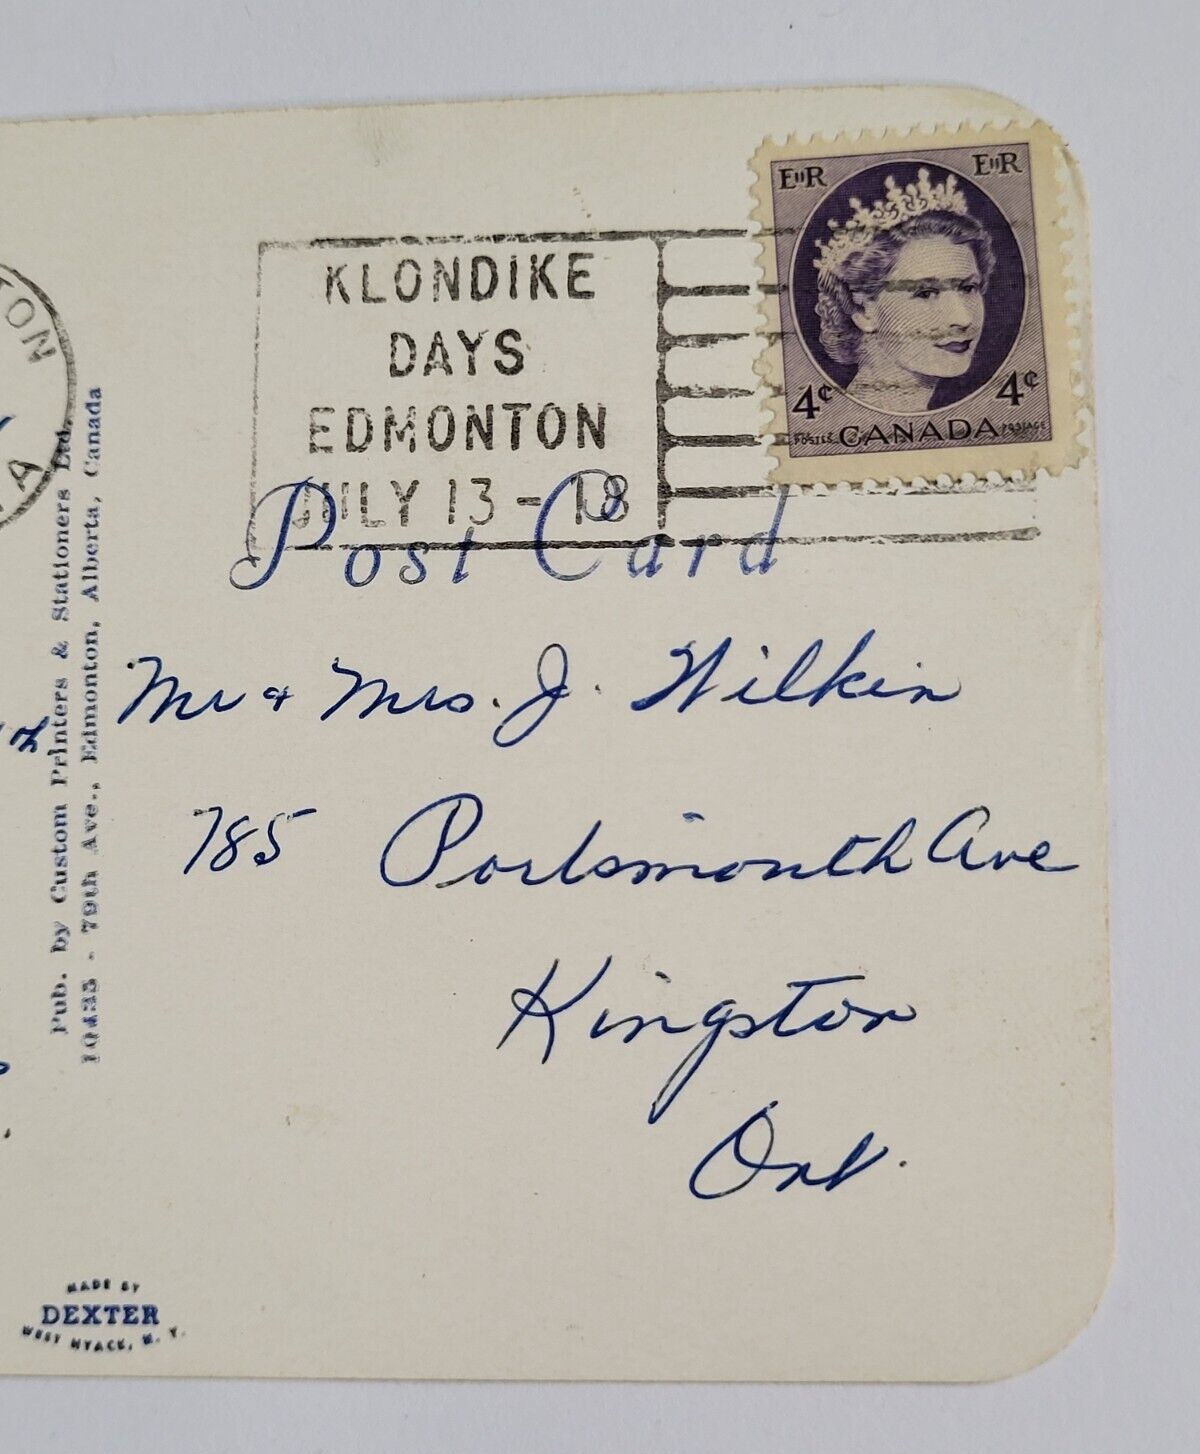 EIIR EIIR
KLONDIKE
DAYS
EDMONTON
JULY 13 - 18
4¢ 4¢
POSTES CANADA POSTAGE
Post Card
Mr & Mrs. J. Wilkin
785 Portsmouth Ave
Kingston
Ont.
Pub. by Custom Printers & Stationers Ltd.
10435 - 79th Ave., Edmonton, Alberta, Canada
MADE BY
DEXTER
WEST NYACK, N. Y.